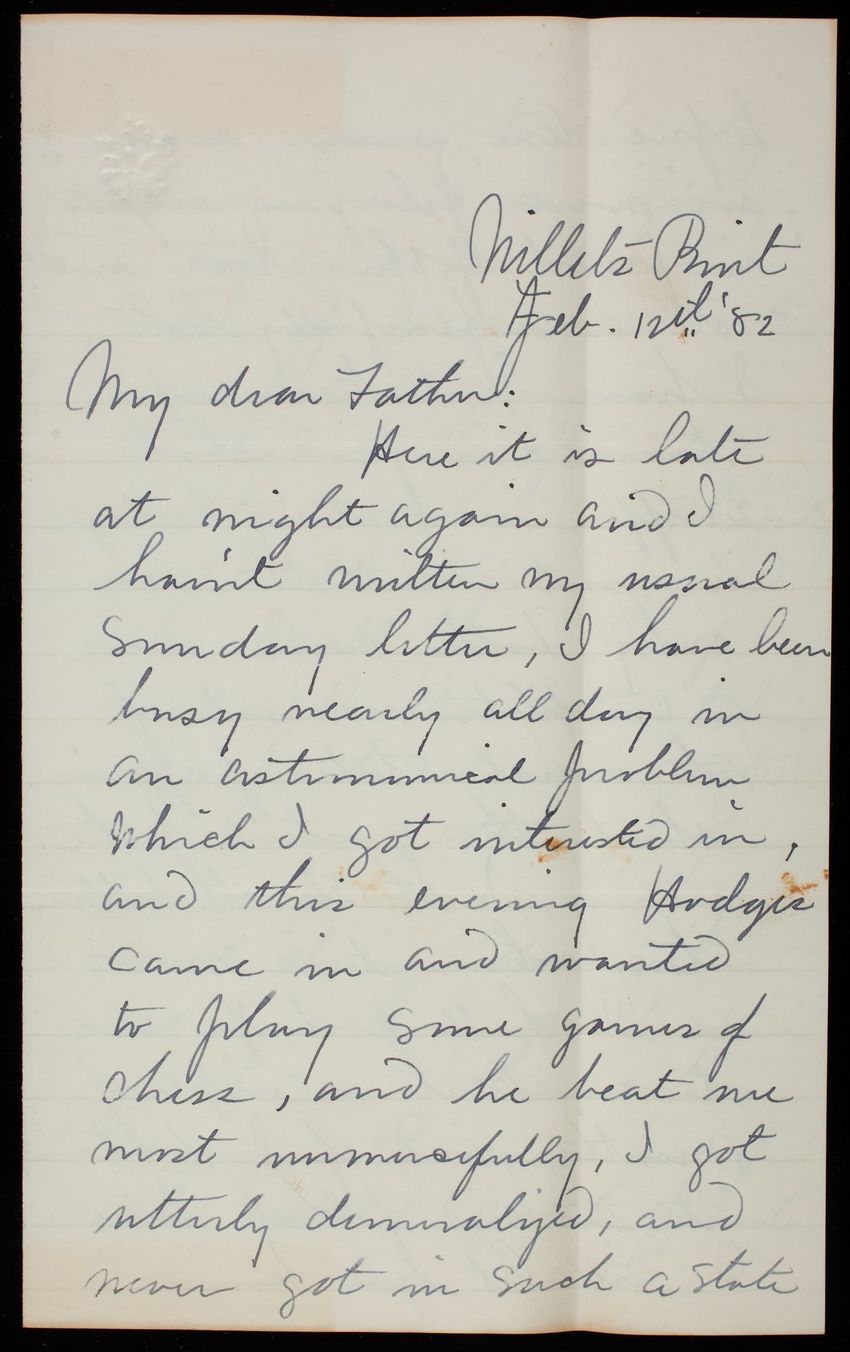 Willets Point
Feb. 12th '82
My dear Father:
Here it is late
at night again and I
hain't written my usual
Sunday letter, I have been
busy nearly all day in
an astronomical problem
which I got interested in,
and this evening Hodges
came in and wanted
to play some games of
chess, and he beat me
most unmercifully, I got
utterly demoralized, and
never got in such a state